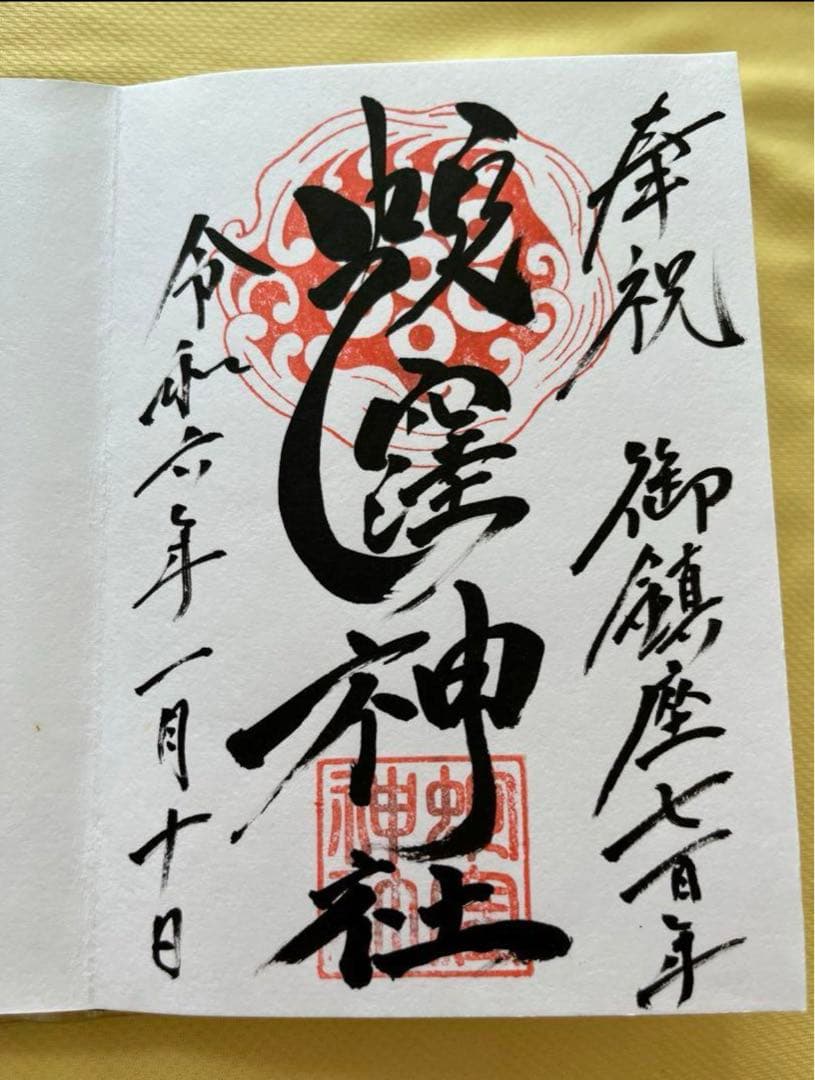 奉祝 御鎮座七百年
蛇窪神社
令和六年一月十日